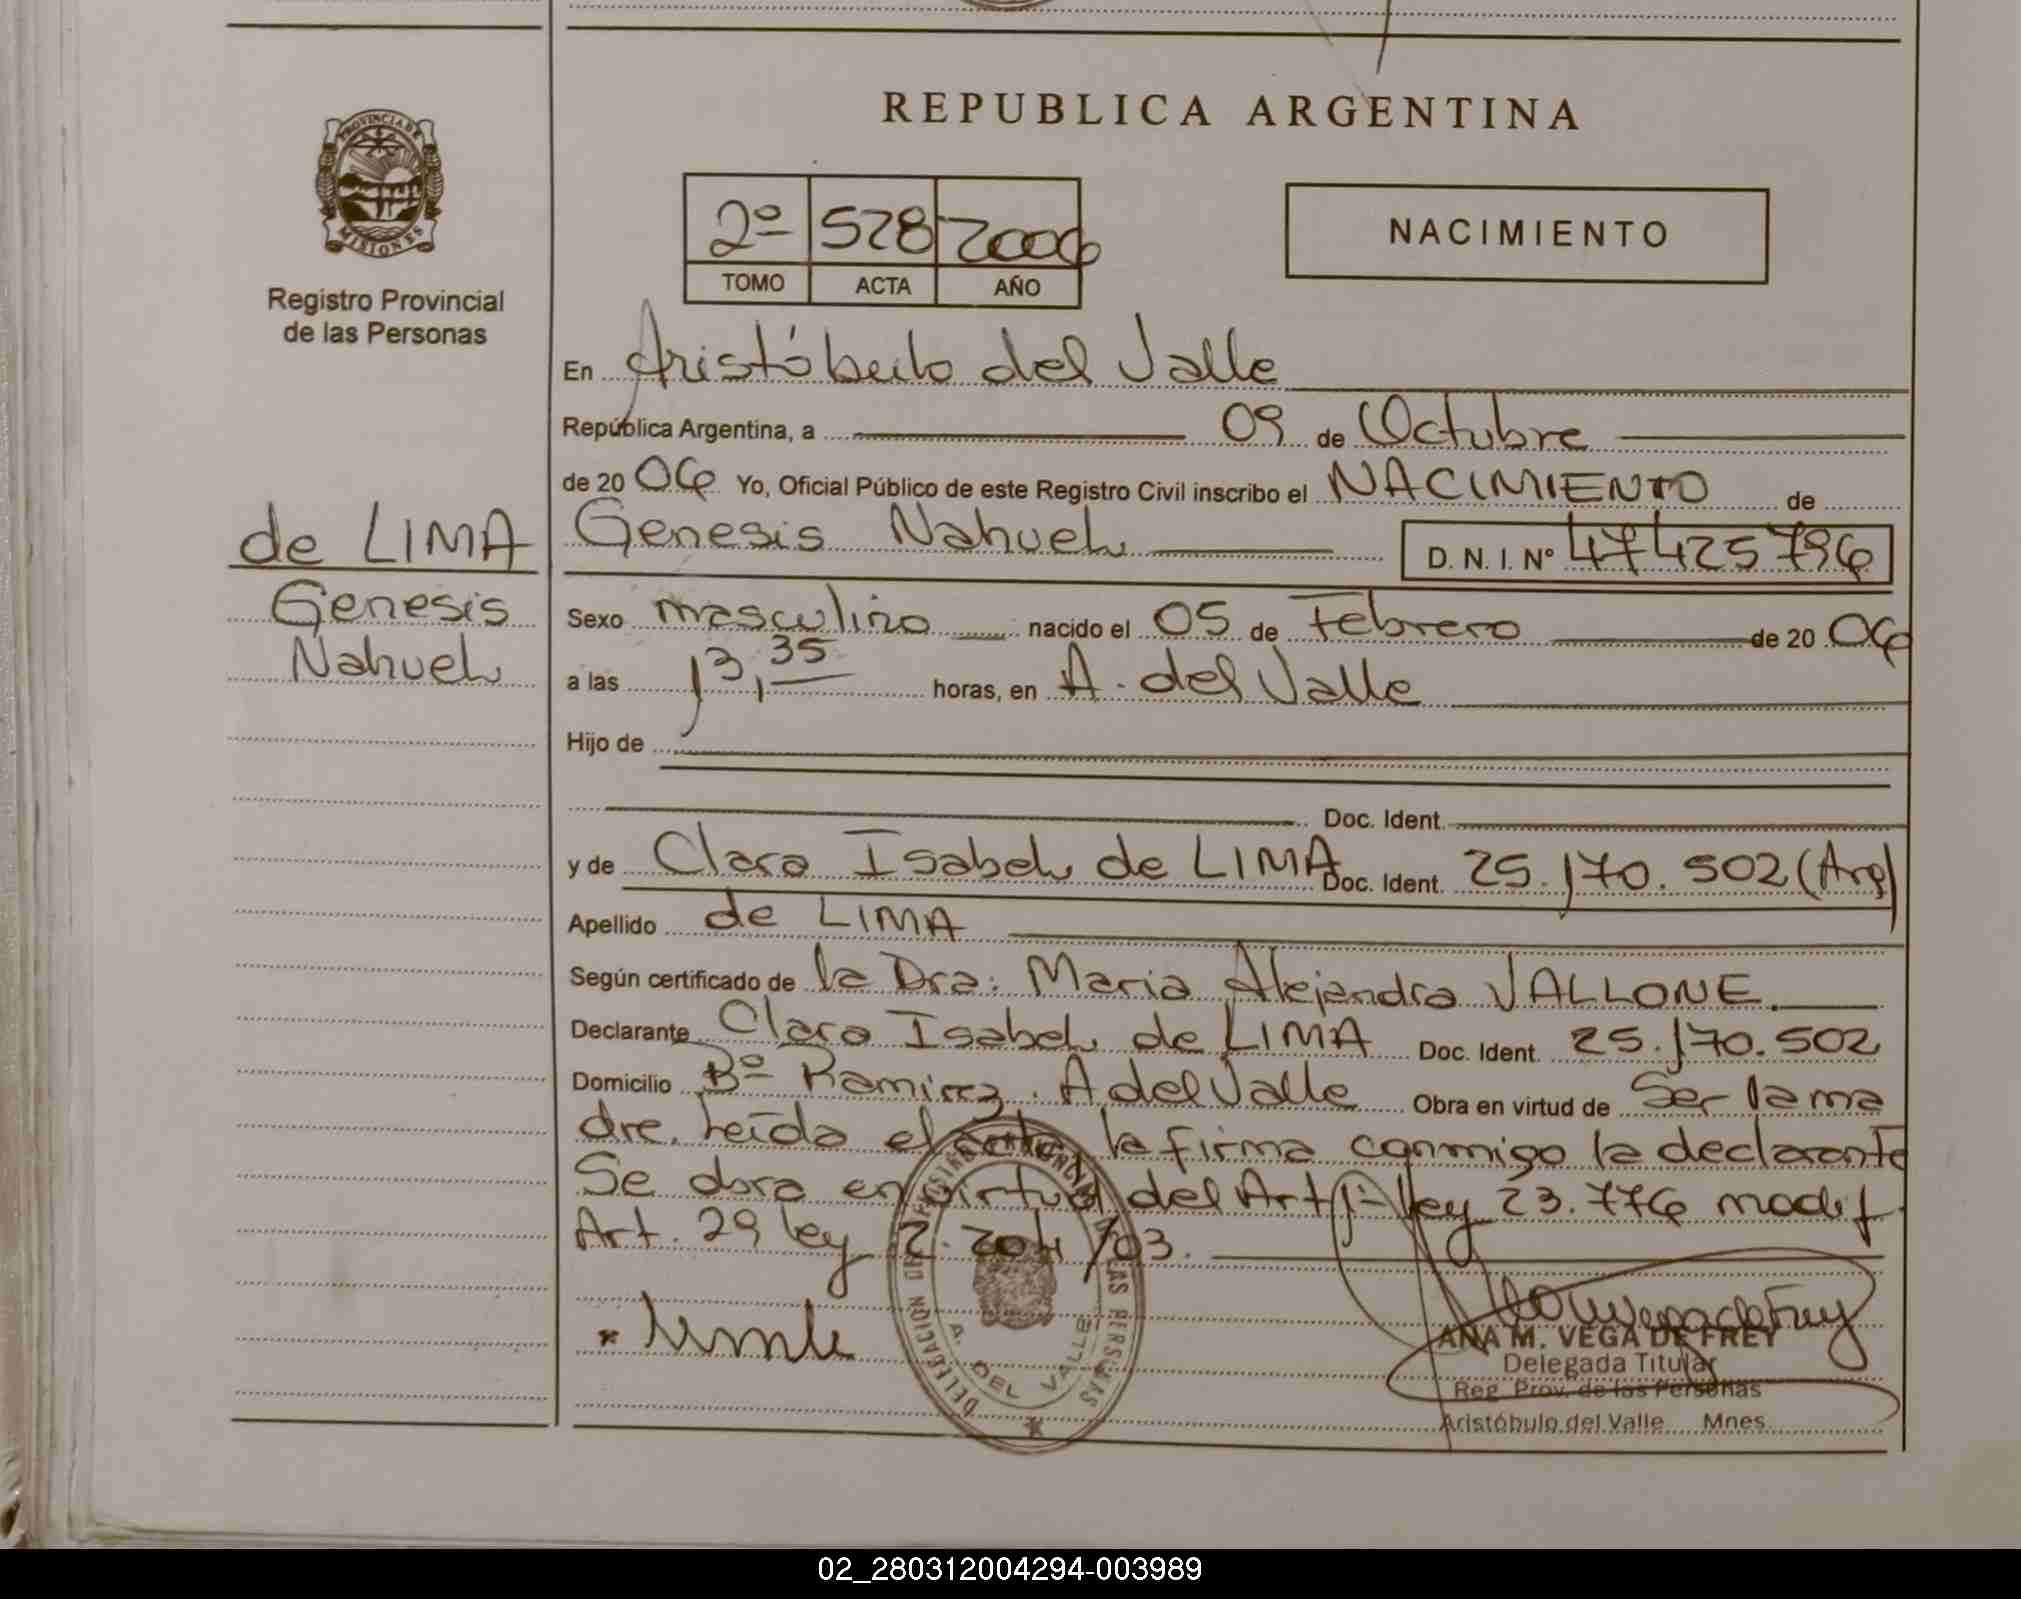 PROVINCIA DE
MISIONES
Registro Provincial
de las Personas
de LIMA
Genesis
Nahuel
REPUBLICA ARGENTINA
2º 528 2006
TOMO ACTA AÑO
NACIMIENTO
En Aristóbulo del Valle
República Argentina, a 09 de Octubre
de 20 06 Yo, Oficial Público de este Registro Civil inscribo el NACIMIENTO de
Genesis Nahuel D. N. I. Nº 47425796
Sexo masculino nacido el 05 de Febrero de 20 06
a las 13,35 horas, en A. del Valle
Hijo de
Doc. Ident.
y de Clara Isabel de LIMA Doc. Ident. 25.170.502 (Arg)
Apellido de LIMA
Según certificado de la Dra: Maria Alejandra VALLONE.
Declarante Clara Isabel de LIMA Doc. Ident. 25.170.502
Domicilio Bº Ramirez. A del Valle Obra en virtud de Ser la ma
dre. Leída el acta, la firma conmigo la declarante
Se obra en virtud del Art 1º ley 23.776 modif
Art. 29 ley 2.204/03.
DELEGACION DE REGISTRO PROVINCIAL DE LAS PERSONAS
A. DEL VALLE
ANA M. VEGA DE FREY
Delegada Titular
Reg. Prov. de las Personas
Aristóbulo del Valle Mnes.
02_280312004294-003989